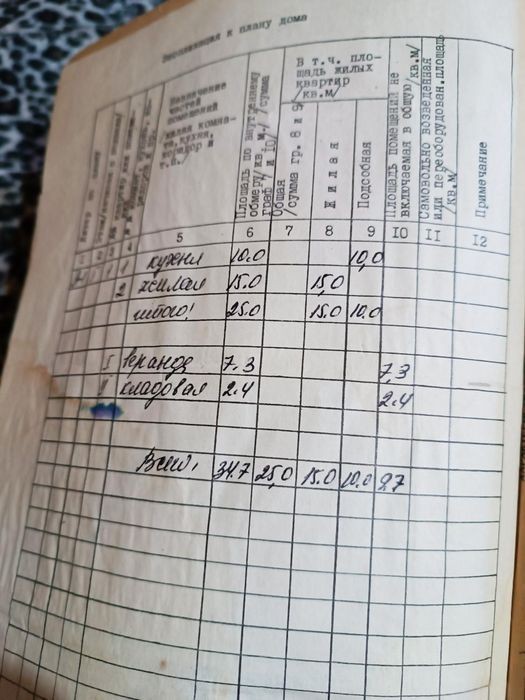 Экспликация к плану дома
Назначение
частей
помещений
/жилая комна-
та, кухня,
коридор и
т.п./
Площадь по внутреннему
обмеру/кв.м./ /сумма
граф 7 и 10/
Общая
/сумма гр. 8 и 9/
В т.ч. пло-
щадь жилых
квартир
/кв.м/
Жилая
Подсобная
Площадь помещений не
включаемая в общую/кв.м/
Самовольно возведенная
или переоборудован.площадь
/кв.м/
Примечание
5 6 7 8 9 10 11 12
1 кухня 10.0 10,0
2 жилая 15.0 15,0
итого: 25.0 15.0 10.0
I веранда 7.3 7,3
кладовая 2.4 2.4
Всего: 34.7 25,0 15.0 10.0 9.7